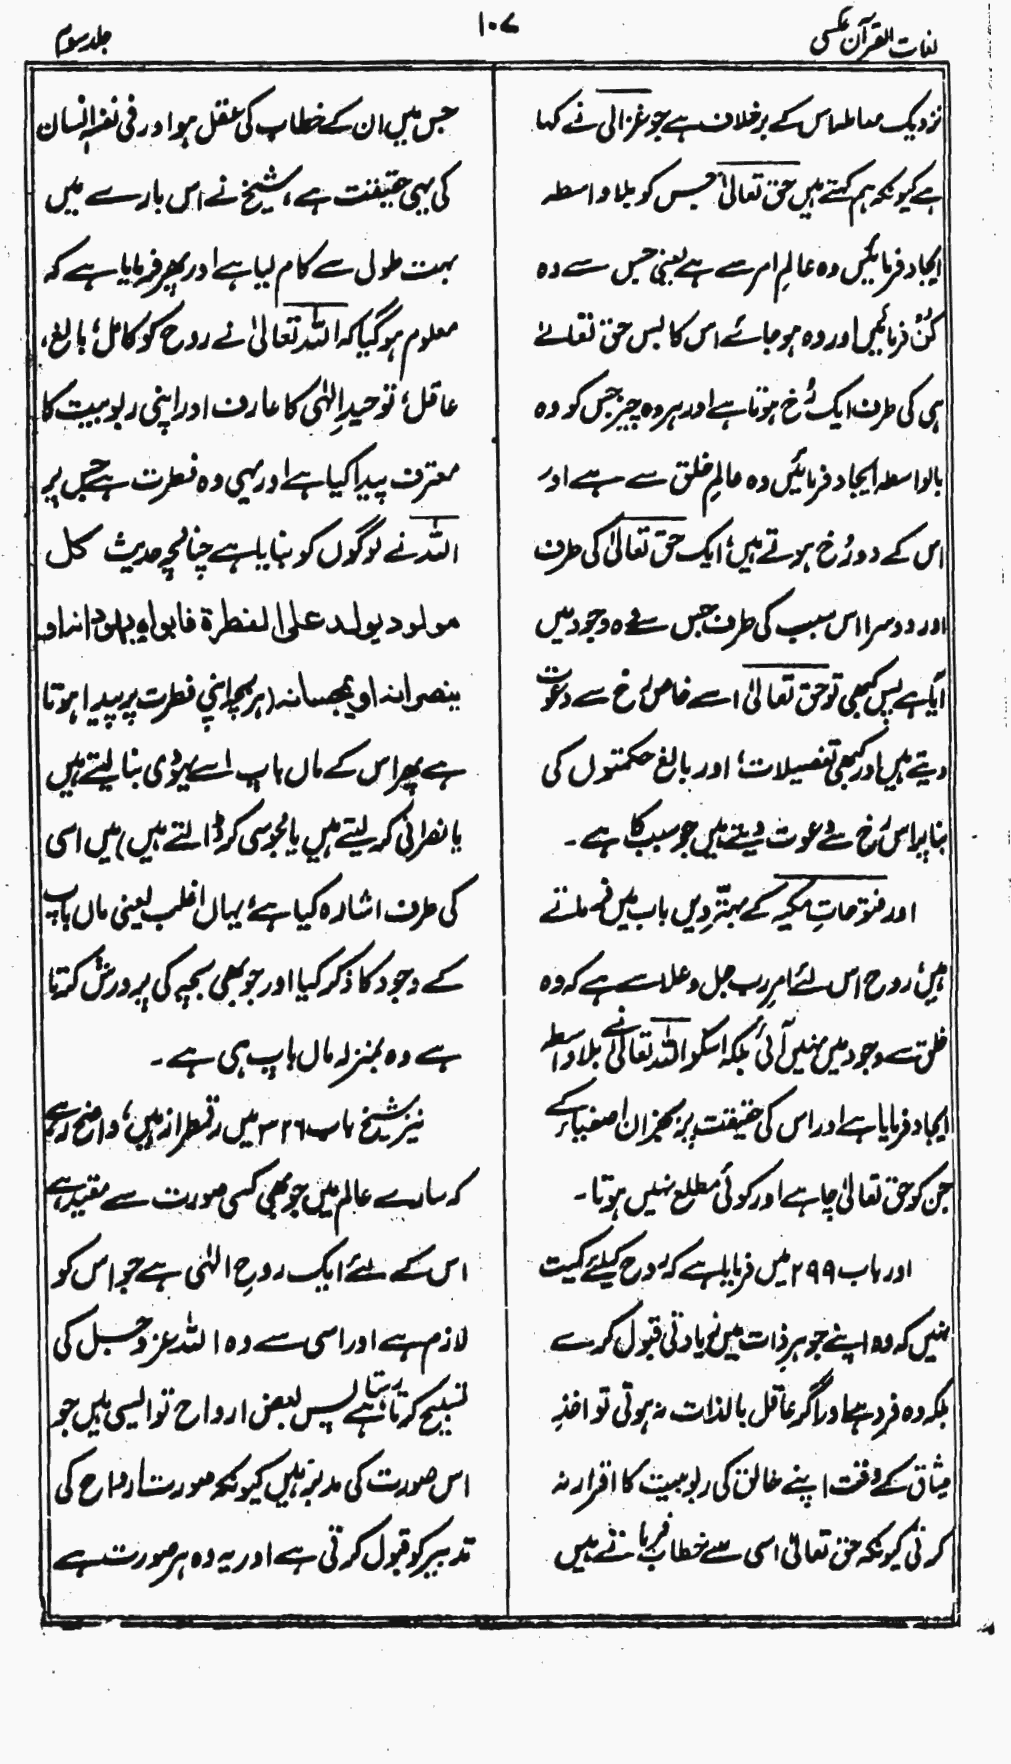 لغات القرآن عکسی
۱۰۷
جلد سوم
نزدیک معاملہ اس کے برخلاف ہے جو غزالی نے کہا
ہے کیونکہ ہم کہتے ہیں حق تعالیٰ جس کو بلا واسطہ
ایجاد فرمائیں وہ عالمِ امر سے ہے یعنی جس سے وہ
کُن فرمائیں اور وہ ہو جائے اس کا بس حق تعالےٰ
ہی کی طرف ایک رُخ ہوتا ہے اور ہر وہ چیز جس کو وہ
بالواسطہ ایجاد فرمائیں وہ عالمِ خلق سے ہے اور
اس کے دو رُخ ہوتے ہیں؛ ایک حق تعالیٰ کی طرف
اور دوسرا اس سبب کی طرف جس سے وہ وجود میں
آیا ہے پس کبھی تو حق تعالیٰ اسے خاص رُخ سے دعوت
دیتے ہیں اور کبھی تفصیلات؛ اور بالغ حکمتوں کی
بنا پر اس رُخ سے دعوت دیتے ہیں جو سبب کا ہے ۔
اور فتوحاتِ مکیہ کے بہترویں باب میں فرماتے
ہیں؛ روح اس لئے امرِ رب جل و علا سے ہے کہ وہ
خلق سے وجود میں نہیں آئی بلکہ اسکو اللہ تعالیٰ نے بلا واسطہ
ایجاد فرمایا ہے اور اس کی حقیقت پر بجز ان اصفیاء کے
جن کو حق تعالیٰ چاہے اور کوئی مطلع نہیں ہوتا ۔
اور باب ۲۹۹ میں فرمایا ہے کہ روح کیلئے کمیت
نہیں کہ وہ اپنے جوہرِ ذات میں زیادتی قبول کرے
بلکہ وہ فرد ہے اور اگر عاقل بالذات نہ ہوتی تو اخذِ
میثاق کے وقت اپنے خالق کی ربوبیت کا اقرار نہ
کرتی کیونکہ حق تعالیٰ اسی سے خطاب فرماتے ہیں
جس میں ان کے خطاب کی عقل ہو اور فی نفسہٖ انسان
کی یہی حقیقت ہے، شیخ نے اس بارے میں
بہت طول سے کام لیا ہے اور پھر فرمایا ہے کہ
معلوم ہو گیا کہ اللہ تعالیٰ نے روح کو کامل؛ بالغ،
عاقل؛ توحیدِ الٰہی کا عارف اور اپنی ربوبیت کا
معترف پیدا کیا ہے اور یہی وہ فطرت ہے جس پر
اللہ نے لوگوں کو بنایا ہے چنانچہ حدیث کل
مولود یولد علی الفطرۃ فابواہ یھودانہ او
ینصرانہ او یمجسانہ (ہر بچہ اپنی فطرت پر پیدا ہوتا
ہے پھر اس کے ماں باپ اسے یہودی بنا لیتے ہیں
یا نصرانی کر لیتے ہیں یا مجوسی کر ڈالتے ہیں) میں اسی
کی طرف اشارہ کیا ہے؛ یہاں اغلب یعنی ماں باپ
کے وجود کا ذکر کیا اور جو بھی بچہ کی پرورش کرتا
ہے وہ بمنزلہ ماں باپ ہی ہے ۔
نیز شیخ باب ۳۲۶ میں رقمطراز ہیں؛ واضح رہے
کہ سارے عالم میں جو بھی کسی صورت سے مقید ہے
اس کے لئے ایک روحِ الٰہی ہے جو اس کو
لازم ہے اور اسی سے وہ اللہ عز وجل کی
تسبیح کرتا رہتا ہے پس بعض ارواح تو ایسی ہیں جو
اس صورت کی مدبر ہیں کیونکہ صورت ارواح کی
تدبیر کو قبول کرتی ہے اور یہ وہ ہر صورت ہے